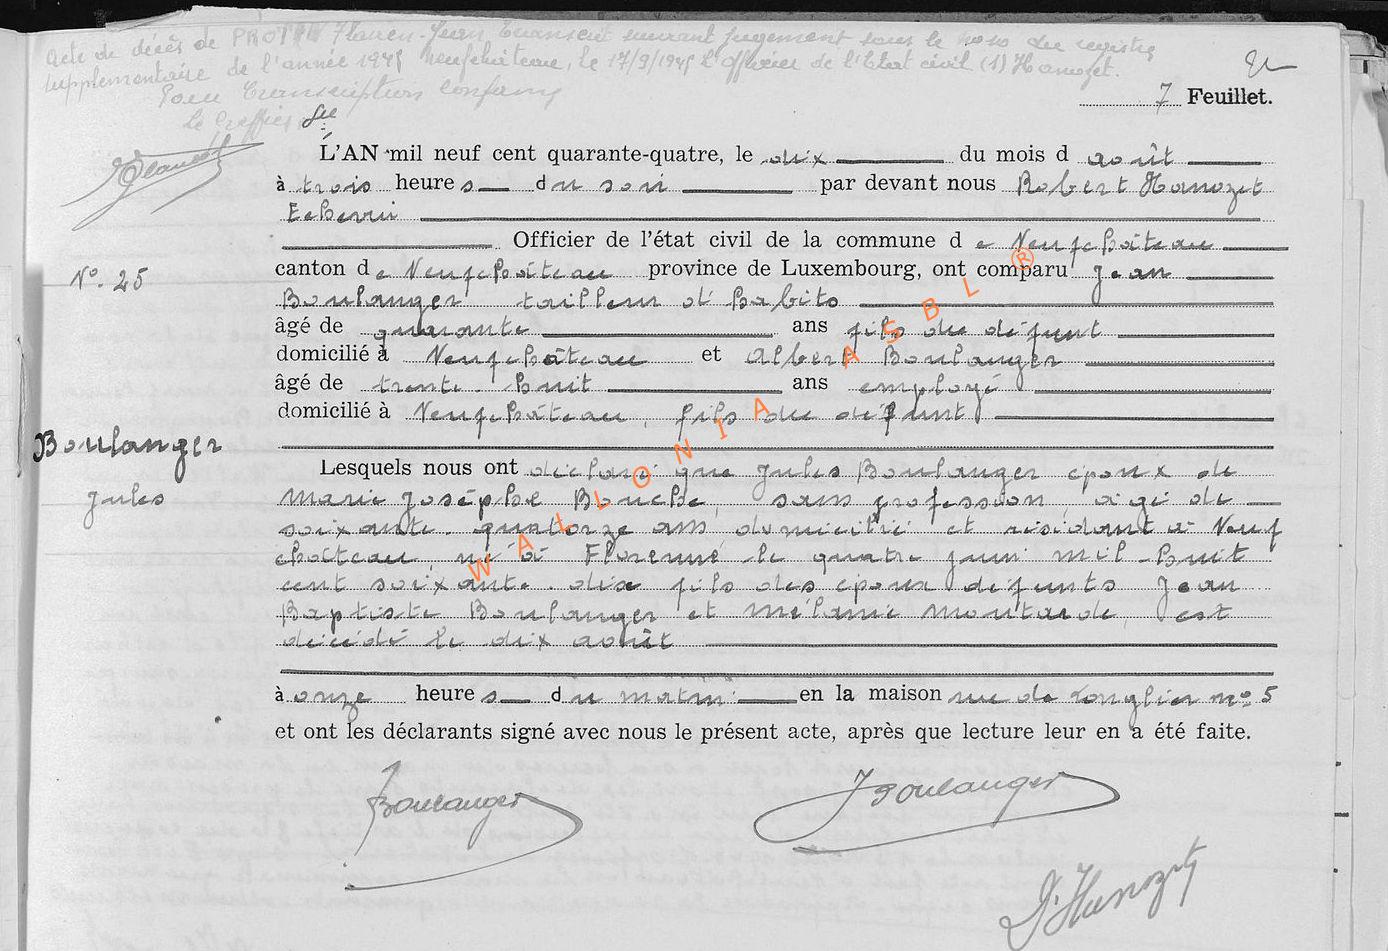 Acte de décès de PROTIN Flavien-Jean Transcrit suivant jugement sous le no du registre
supplémentaire de l'année 1945 Neufchâteau, le 17/9/1945 L'officier de l'Etat civil (1) Hanozet.
Pour Transcription conforme
Le Greffier
7 Feuillet.
L'AN mil neuf cent quarante-quatre, le dix du mois d août
à trois heures du soir par devant nous Robert Hanozet
Echevin
Officier de l'état civil de la commune de Neufchâteau
N° 25
canton de Neufchâteau province de Luxembourg, ont comparu Jean
Boulanger tailleur d'habits
âgé de quarante ans fils du défunt
domicilié à Neufchâteau et Albert Boulanger
âgé de trente-huit ans employé
domicilié à Neufchâteau, fils du défunt
Boulanger
Jules
Lesquels nous ont déclaré que Jules Boulanger époux de
Marie Josèphe Bouche, sans profession, âgé de
soixante-quatorze ans, domicilié et résidant à Neuf
château, né à Florenne le quatre juin mil-huit
cent soixante-dix fils des époux défunts Jean
Baptiste Boulanger et Mélanie Moutarde, est
décédé le dix août
à onze heures du matin en la maison rue de Longlier n° 5
et ont les déclarants signé avec nous le présent acte, après que lecture leur en a été faite.
Boulanger
J Boulanger
Hanozet
WALLONIA ASBL ®